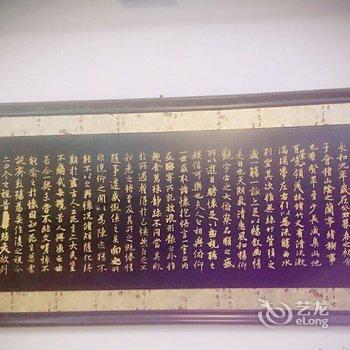 永和九年歲在癸丑暮春之初
于會稽山陰之蘭亭脩禊事
也羣賢畢至少長咸集此地
有崇山峻領茂林脩竹又有清流激
湍暎帶左右引以為流觴曲水
列坐其次雖無絲竹管弦之
盛一觴一詠亦足以暢敘幽情
是日也天朗氣清惠風和暢仰
觀宇宙之大俯察品類之盛
所以遊目騁懷足以極視聽之
娛信可樂也夫人之相與俯仰
一世或取諸懷抱悟言一室之內
或因寄所託放浪形骸之外雖
趣舍萬殊靜躁不同當其欣
於所遇暫得於己快然自足不
知老之將至及其所之既惓情
隨事遷感慨係之矣向之所
欣俛仰之間以為陳迹猶不
能不以之興懷況脩短隨化終
期於盡古人云死生亦大矣豈
不痛哉每攬昔人興感之由
若合一契未嘗不臨文嗟悼不
能喻之於懷固知一死生為虛
誕齊彭殤為妄作後之視今
亦由今之視昔悲夫故列
艺龙
eLong.com